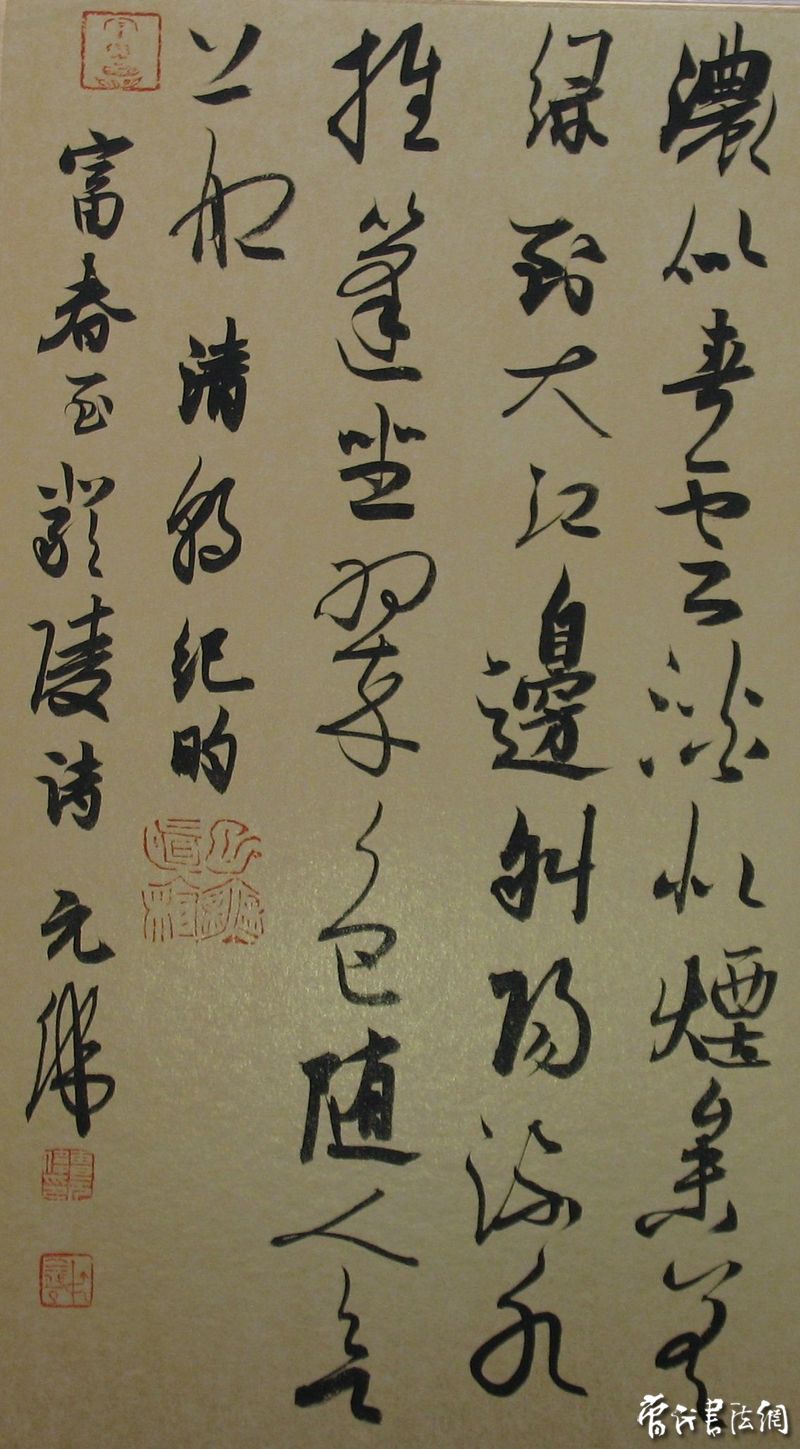 濃似春雲淡似煙參差
緑到大江邊斜陽流水
推篷坐翠色随人欲
上船 清朝紀昀
富春至嚴陵詩 元
書法網